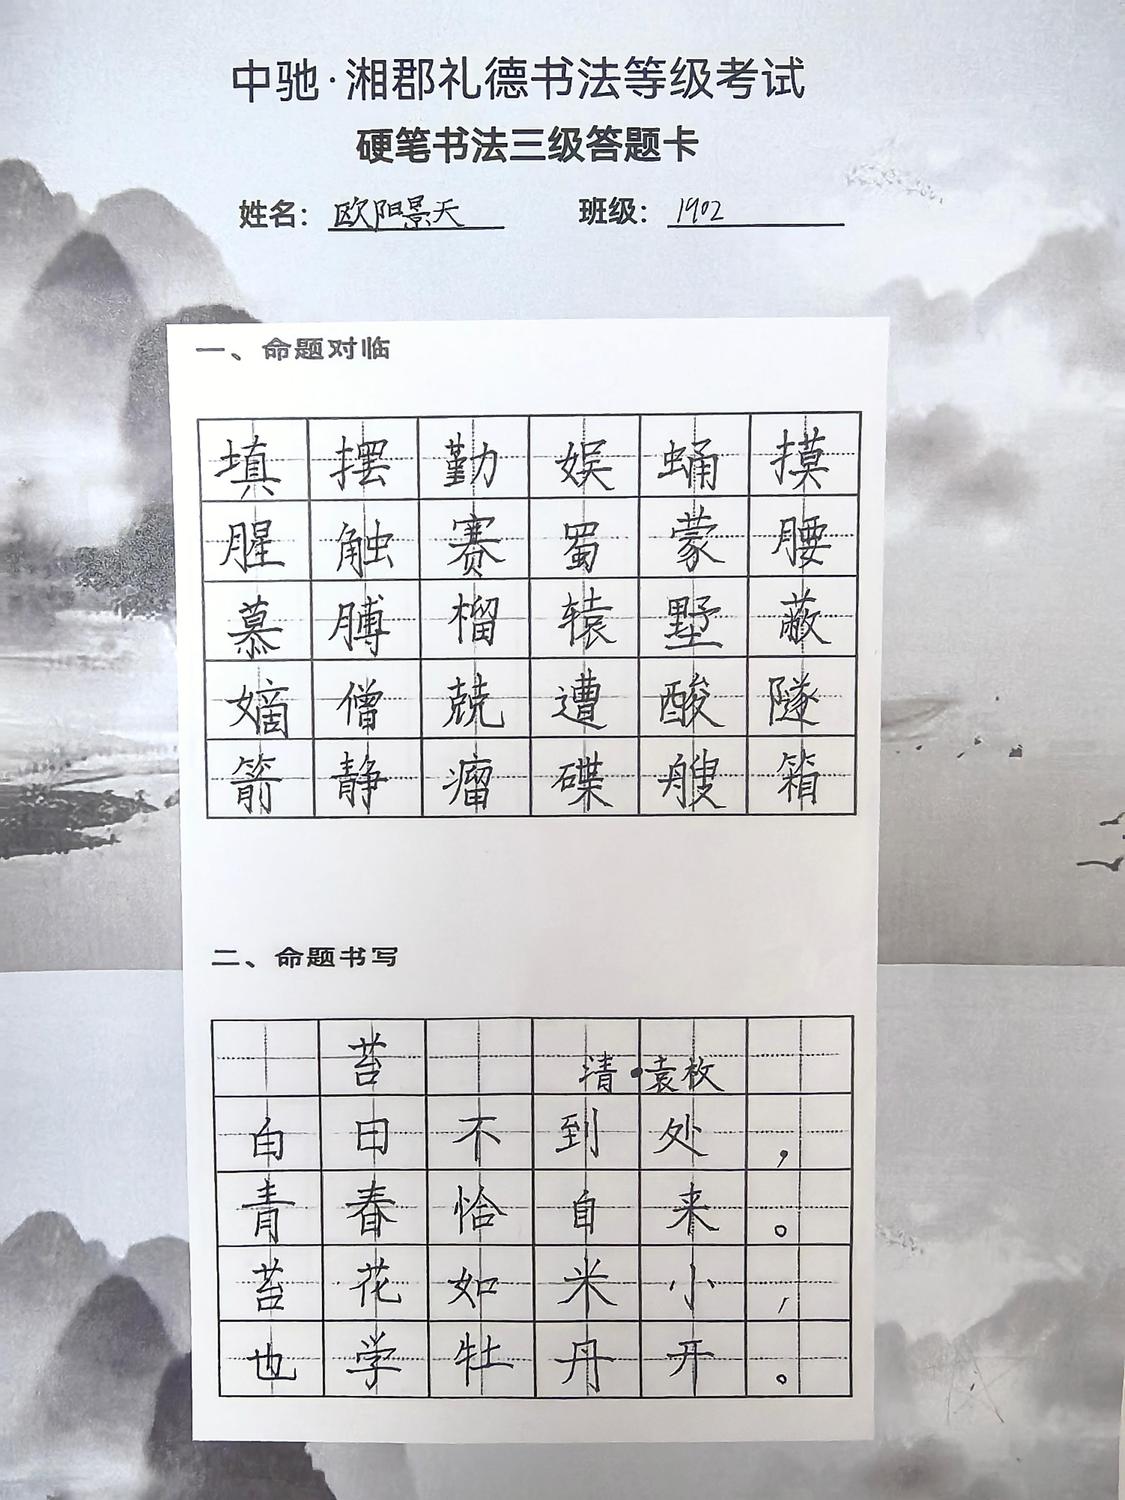 中驰·湘郡礼德书法等级考试
硬笔书法三级答题卡
姓名: 欧阳景天 班级: 1902
一、命题对临
填摆勤娱蛹摸
腥触赛蜀蒙腰
慕膊榴辕墅蔽
嫡僧兢遭酸隧
箭静瘤碟艘箱
二、命题书写
苔 清·袁枚
白日不到处,
青春恰自来。
苔花如米小,
也学牡丹开。